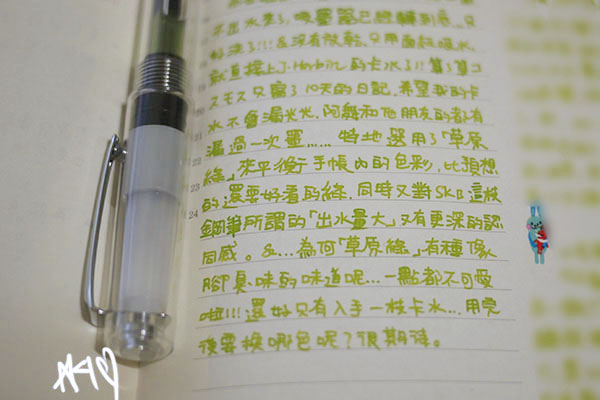 不出水來了，吸墨器已經轉到底…只
好洗了!!! &沒有徹乾，只用面紙吸水，
就直接上了Herbin的卡水了!! 算了算
20 スモス只寫了10天的日記，希望我的卡
水不會漏光光，阿錢和他朋友的都有
21 漏過一次墨…… 特地選用了「草原
22 綠」來平衡手帳內的色彩，比預想
23 的還要好看的綠，同時又對SKB這枝
24 鋼筆所謂的「出水量大」又有更深的認
同感。&…為何「草原綠」有種像
腳臭味的味道呢… 一點都不可愛
啦!!! 還好只有入手一枝卡水… 用完
後要換哪色呢？很期待。